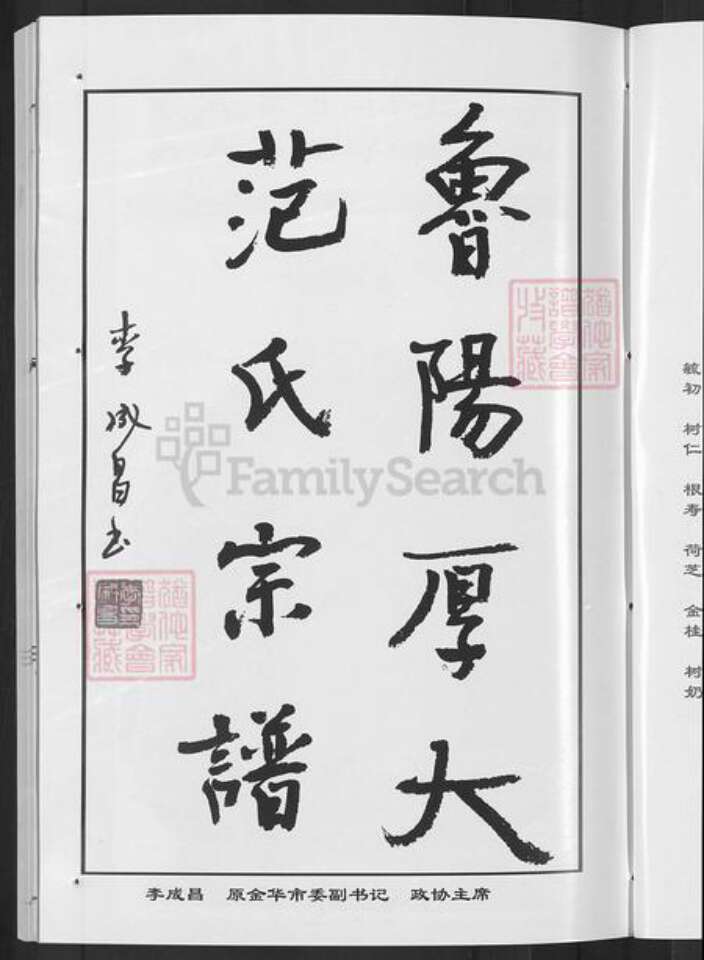 魯陽厚大
范氏宗譜
李成昌书
李成昌 原金华市委副书记 政协主席
FamilySearch
譜學會
毓初 树仁 根寿 荷芝 金桂 树奶